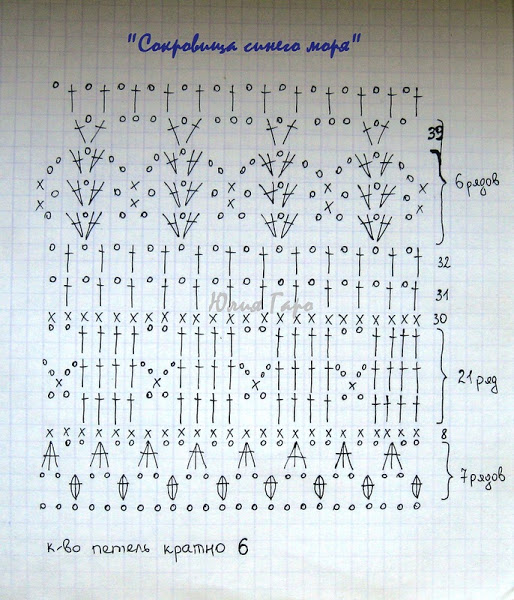 "Сокровища синего моря"
39
6 рядов
32
31
Юлия Гаро
30
21 ряд
8
7 рядов
к-во петель кратно 6